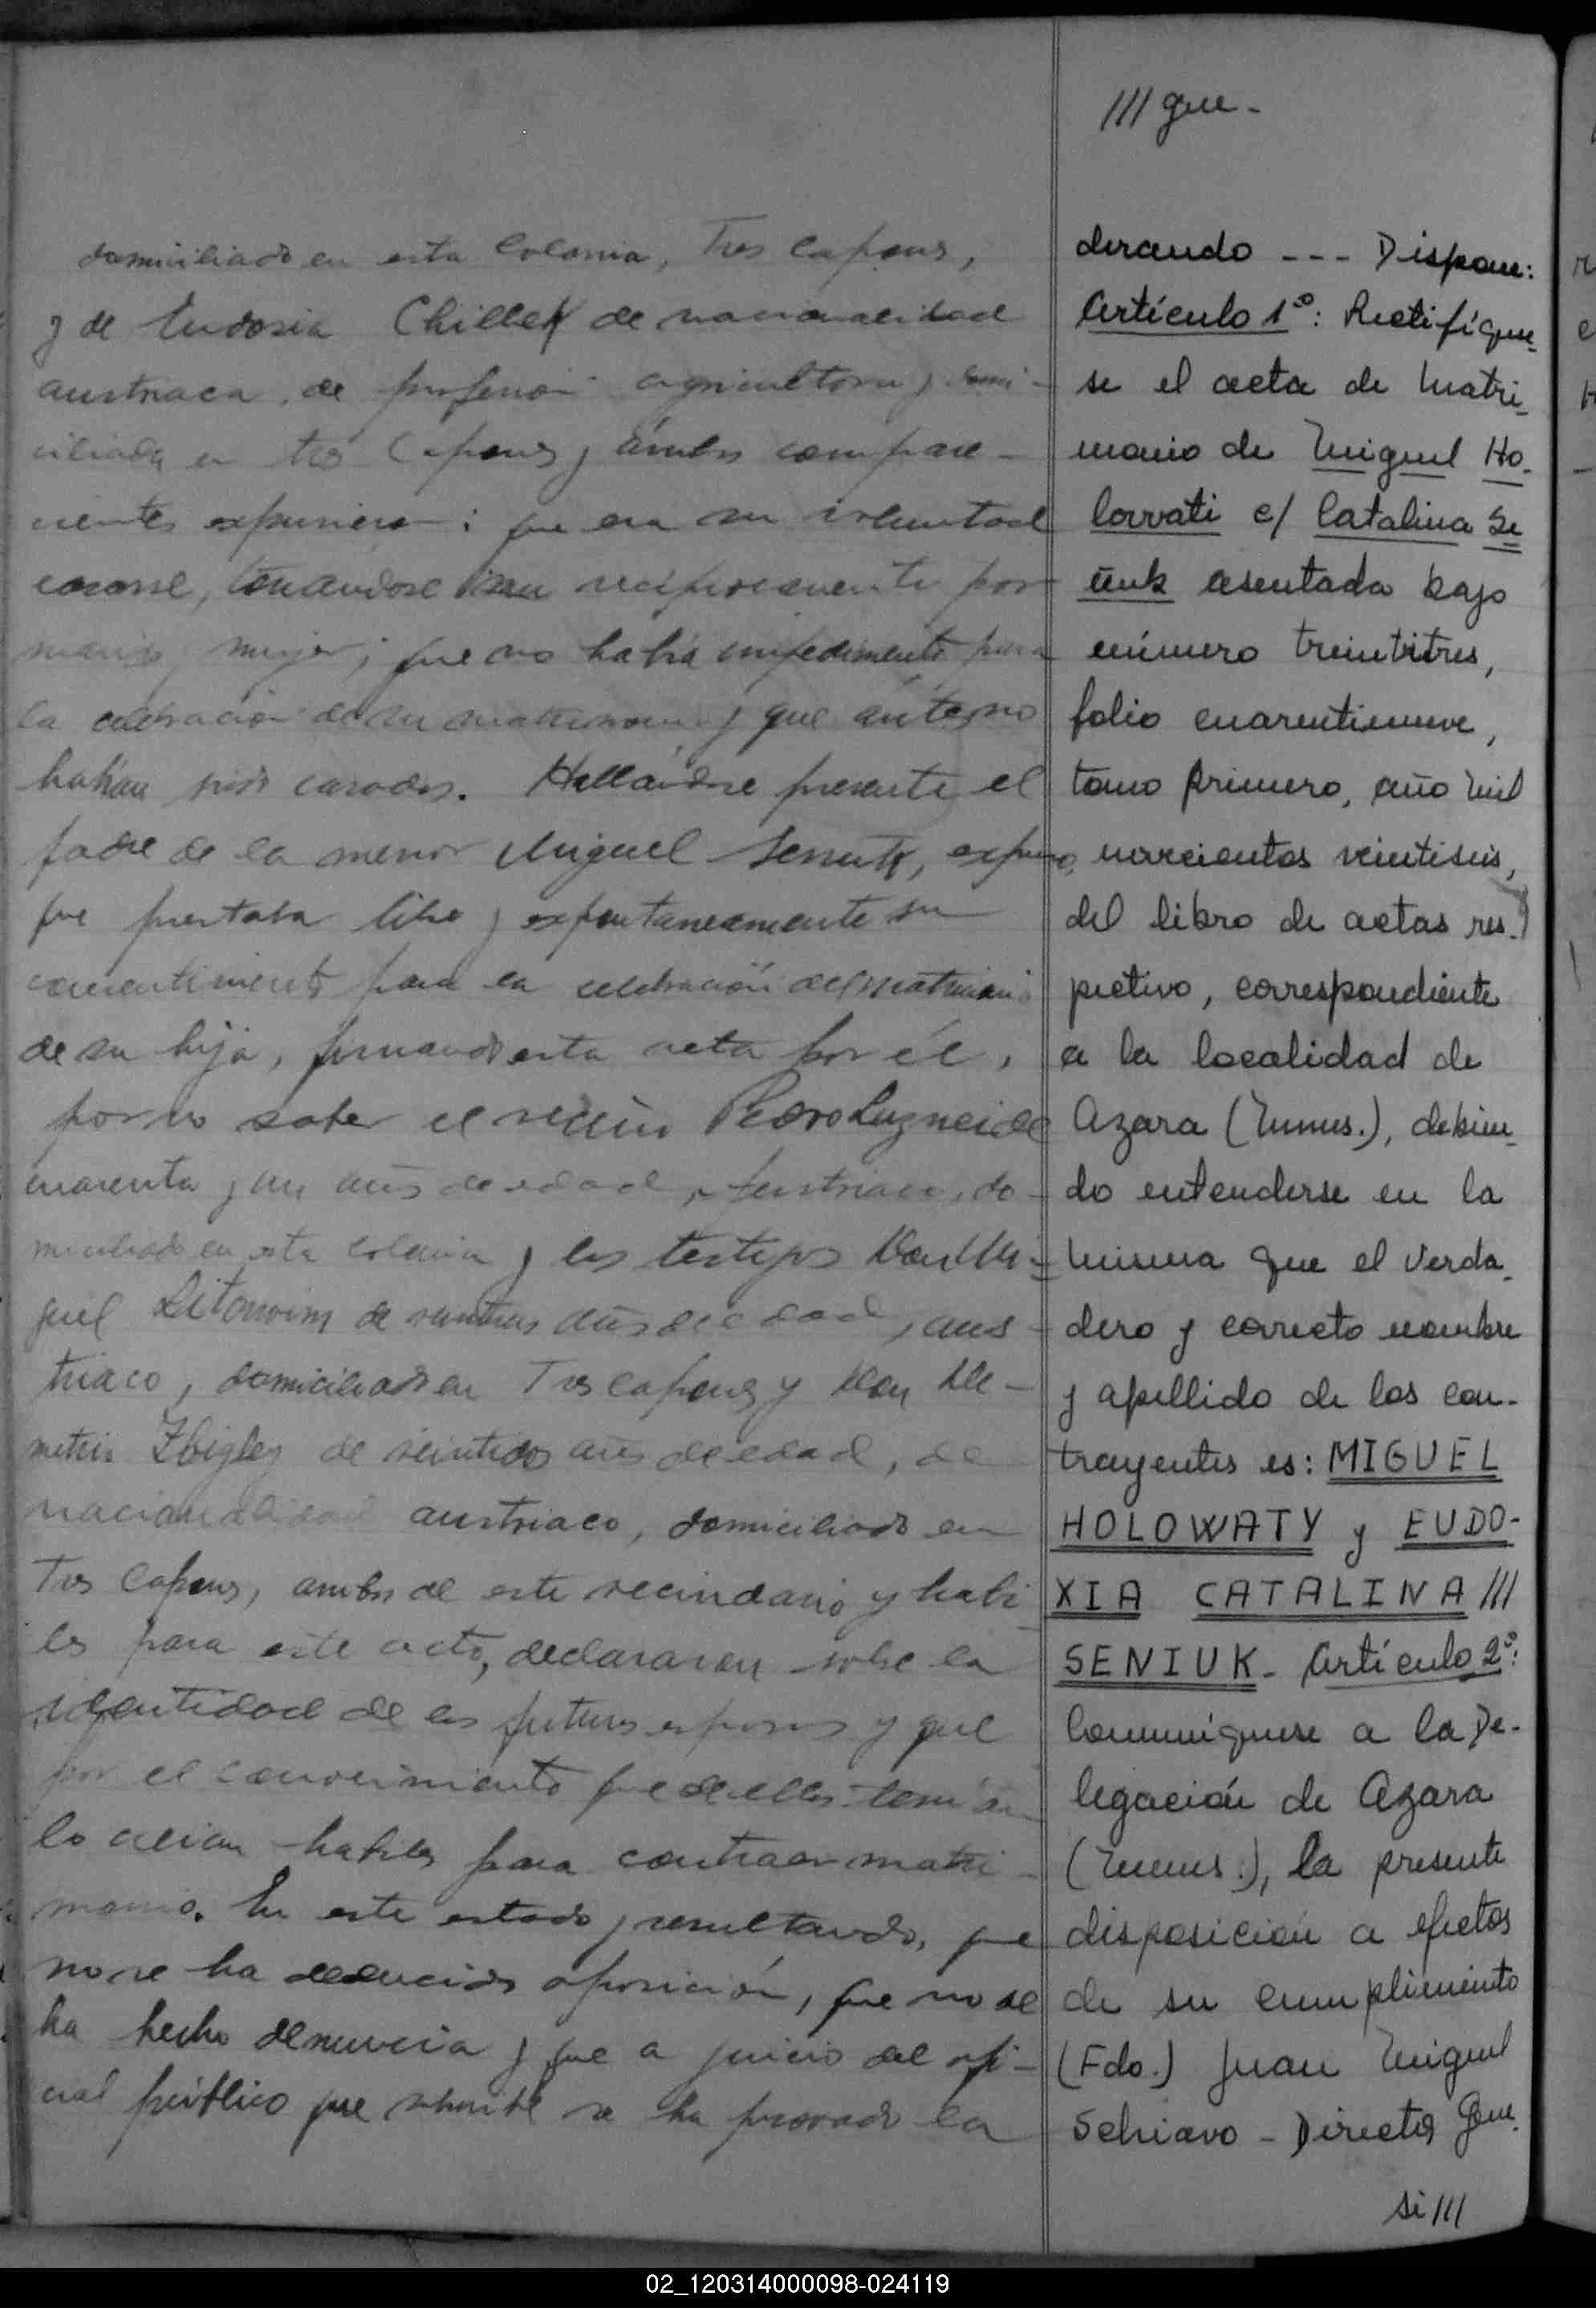 domiciliado en esta Colonia, Tres Capons,
y de Eudosia Chillek de nacionalidad
austriaca, de profesión agricultora y domi-
ciliada en tres Capons, ámbos compare-
cientes expusieron: que era su voluntad
casarse, tomandose reciprocamente por
marido y mujer; que no habia impedimento para
la celebración de su matrimonio y que ántes no
habían sido casados. Hallandose presente el
padre de la menor Miguel Senuk, expuso,
que prestaba libre y expontaneamente su
consentimiento para la celebración del matrimonio
de su hija, firmando esta acta por él,
por no saber el vecino Pedro Luznei de
cuarenta y un años de edad, Austriaco, do-
miciliado en esta colonia y los testigos Don Mi-
guel Litonwim de años de edad, aus-
triaco, domiciliado en Tres capons y Don De-
metrio Zbigley de veintidos años de edad, de
nacionalidad austriaco, domiciliado en
Tres Capons, ambos de este vecindario y habi
les para este acto, declararon sobre la
identidad de los futuros esposos y que
por el conocimiento que de ellos tenían
lo creian habiles para contraer matri-
monio. En este estado y resultando, que
no se ha deducido oposición, que no se
ha hecho denuncia y que a juicio del ofi-
cial público que subscribe se ha provado la
/// que-
derando --- Dispone:
Artículo 1º: Rectifíque-
se el acta de Matri-
monio de Miguel Ho-
lovati c/ Catalina Se
ñuk asentada bajo
número treintitres,
folio cuarentinueve,
tomo primero, año mil
novecientos veintiseis,
del libro de actas res-
pectivo, correspondiente
a la localidad de
Azara (Mnes.), debien-
do entenderse en la
misma que el verda-
dero y correcto nombre
y apellido de los con-
trayentes es: MIGUEL
HOLOWATY y EUDO-
XIA CATALINA ///
SENIUK- Artículo 2º:
Comuníquese a la De-
legación de Azara
(Mnes.), la presente
disposición a efectos
de su cumplimiento
(Fdo.) Juan Miguel
Schiavo - Director Gene.
si ///
02_120314000098-024119